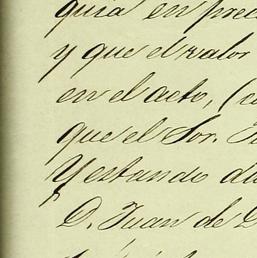 quia en prec
y que el valor
en el acto, (co
que el Sor.
Y estando
D. Juan de D